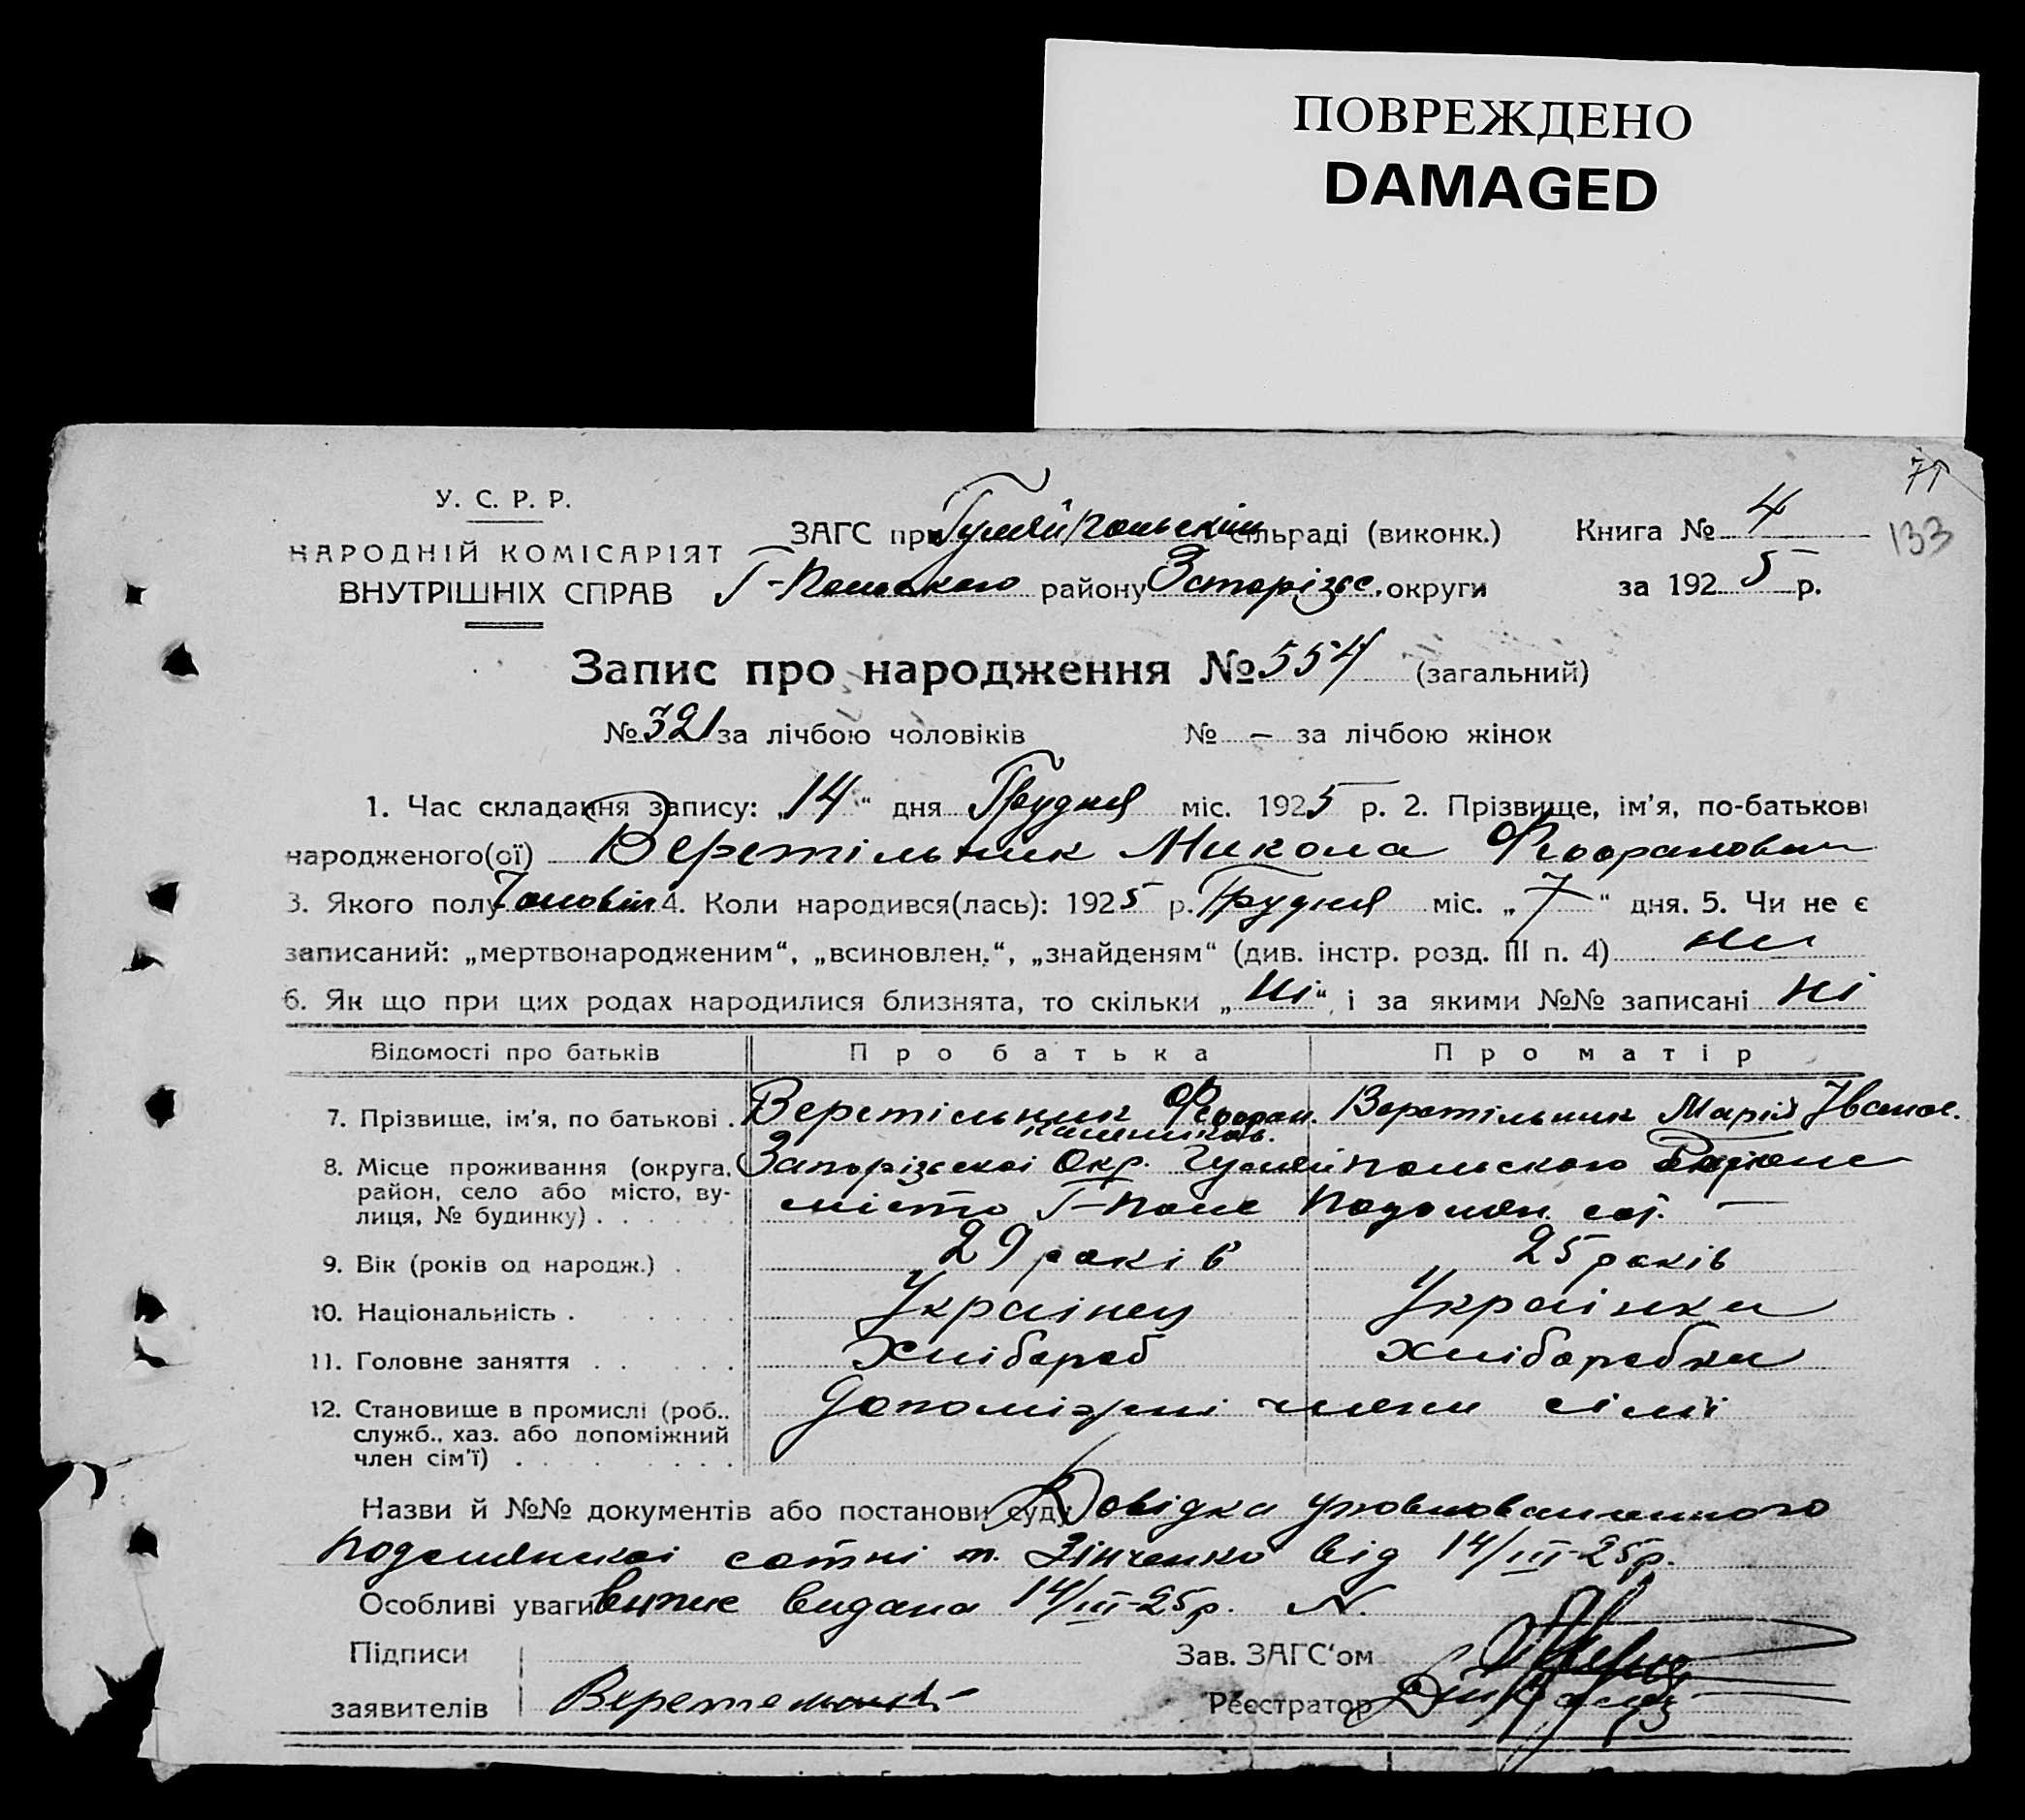 ПОВРЕЖДЕНО
DAMAGED
71
133
У. С. Р. Р.
НАРОДНІЙ КОМІСАРІЯТ
ВНУТРІШНІХ СПРАВ
ЗАГС при Гуляйпольскім сільраді (виконк.)
Книга № 4
Г-Польского району Запорізьс. округи
за 1925 р.
Запис про народження № 554 (загальний)
№ 321 за лічбою чоловіків № — за лічбою жінок
1. Час складання запису: „14“ дня Грудня міс. 1925 р. 2. Прізвище, ім'я, по-батькові
народженого(ої) Веретільник Микола Феофанович
3. Якого полу Чоловіч 4. Коли народився(лась): 1925 р. Грудня міс. „7“ дня. 5. Чи не є
записаний: „мертвонародженим“, „всиновлен.“, „знайденям“ (див. інстр. розд. III п. 4) ни
6. Як що при цих родах народилися близнята, то скільки „ні“, і за якими №№ записані ні
Відомості про батьків Про батька Про матір
7. Прізвище, ім'я, по батькові . Веретільник Феофан. Веретільник Марія Іванов.
8. Місце проживання (округа, Запорізьскоі Окр. Гуляйпольского Району
район, село або місто, ву- місто Г-Поле Подолян сот. —
лиця, № будинку) . . . . . .
9. Вік (років од народж.) . 29 років 25 років
10. Національність . . . . . . Украінец Украінка
11. Головне заняття . . . . . Хлібороб Хліборобка
12. Становище в промислі (роб., Допоміжні члени сімї
служб., хаз. або допоміжний
член сім'ї) . . . . . . . .
Назви й №№ документів або постанови суду Довідка уповноваженного
Подолянскоі сотні т. Зінченко від 14/III-25р.
Особливі уваги випис видана 14/III-25р. N.
Підписи
Зав. ЗАГС'ом
заявителів Веретельник
Реєстратор